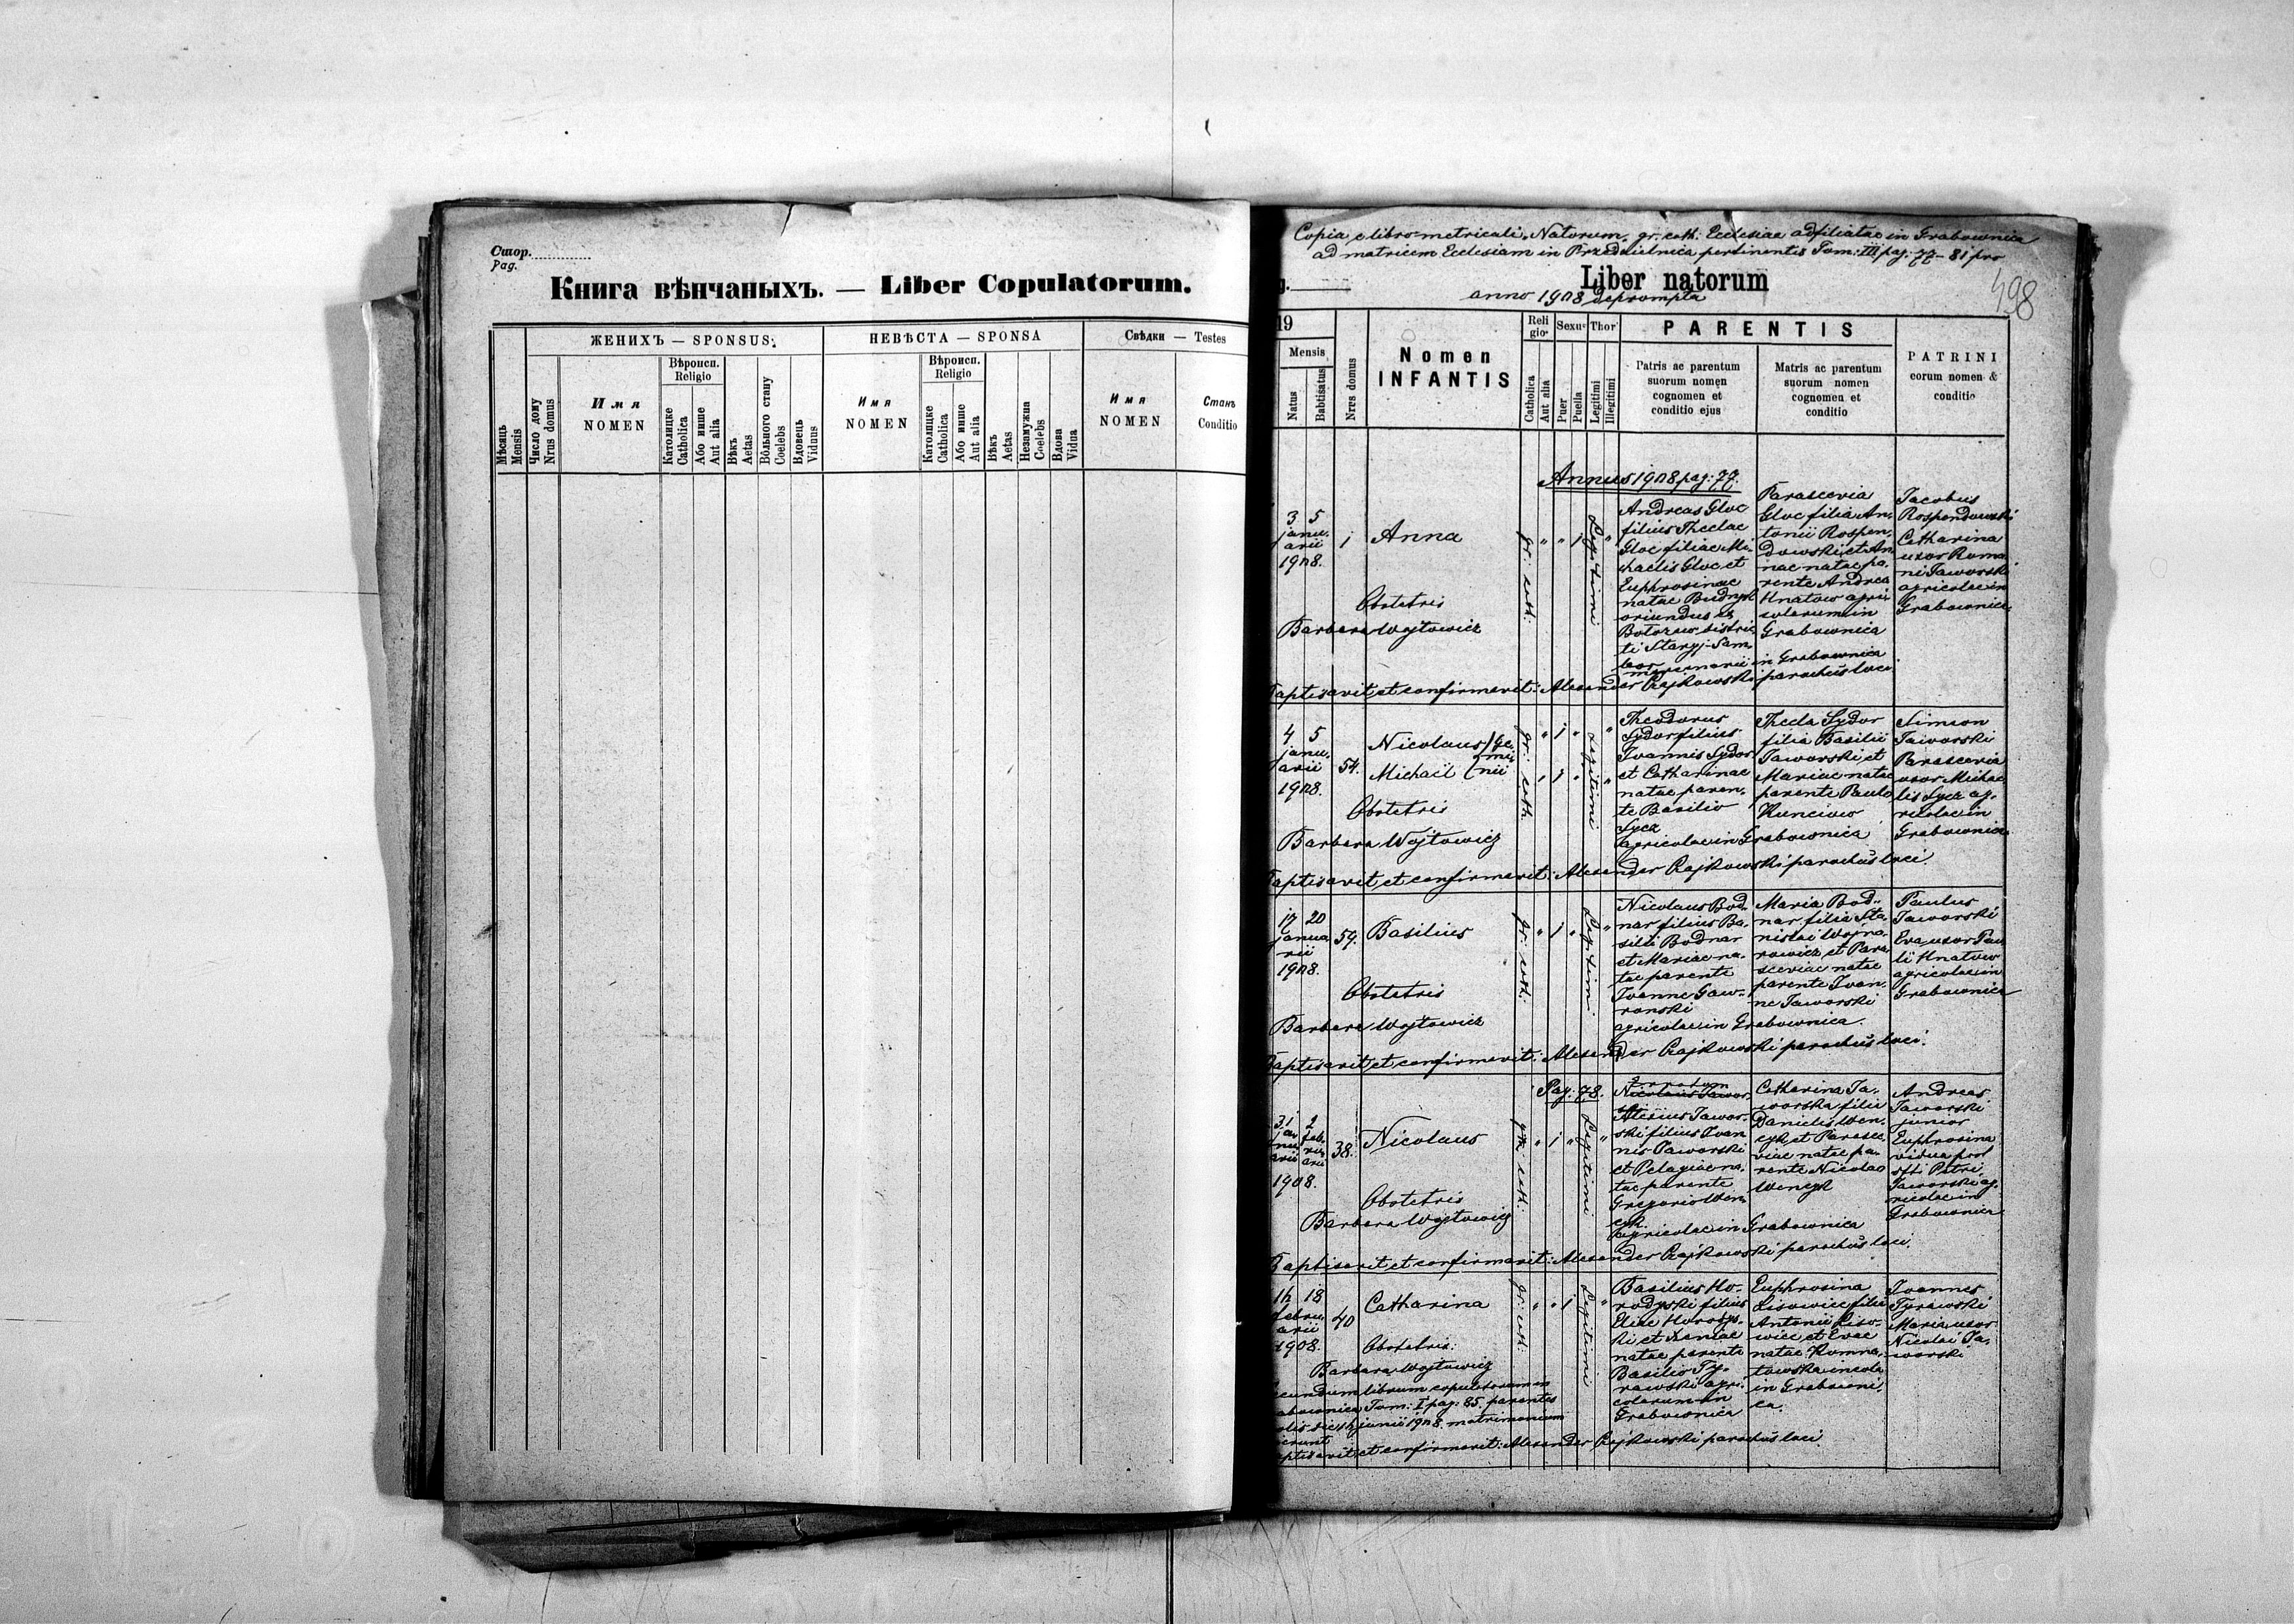 Стор.
Pag.
Книга вѣнчаныхъ. — Liber Copulatorum.
ЖЕНИХЪ — SPONSUS.
НЕВѢСТА — SPONSA
Свѣдки — Testes
Мѣсяць
Mensis
Число дому
Nrus domus
Имя
NOMEN
Вѣроисп.
Religio
Католицке
Catholica
Або инше
Aut alia
Вѣкъ
Aetas
Вôльного стану
Coelebs
Вдовець
Viduus
Имя
NOMEN
Вѣроисп.
Religio
Католицке
Catholica
Або инше
Aut alia
Вѣкъ
Aetas
Незамужна
Coelebs
Вдова
Vidua
Имя
NOMEN
Станъ
Conditio
Copia e libro metricali Natorum gr. cath. Ecclesiae adfiliatae in Grabownica
ad matricem Ecclesiam in Przedzielnica pertinentis Tom: III pag. 77-81 pro
Liber natorum
anno 1908 deprompta
498
19
Mensis
Natus
Babtisatus
Nres domus
Nomen
INFANTIS
Reli
gio
Catholica
Aut alia
Sexus
Puer
Puella
Thor
Legitimi
Illegitimi
PARENTIS
Patris ac parentum
suorum nomen
cognomen et
conditio ejus
Matris ac parentum
suorum nomen
cognomen et
conditio
PATRINI
eorum nomen &
conditio
Annus 1908 pag: 77.
3 5
janu-
arii
1908.
1
Anna
Obstetris
Barbara Wojtowicz
gr: cath:
" " 1
Legitimi
"
Andreas Gloc
filius Theclae
Gloc filiae Mi-
chaelis Gloc et
Euphrosinae
natae Budnyk
oriundus ex
distric-
ti Staryj-Sam-
bor
Parascevia
Gloc filia An-
tonii Rospon-
dowski et An-
nae natae pa-
rente Andrea
Hnatow agri-
colarum in
Grabownica
in Grabownica
Jacobus
Rospondowski
Catharina
uxor Roma
ni Jaworski
agricolae in
Grabownica
Baptisavit et confirmavit: Alexander Czajkowski parochus loci.
4 5
janu-
arii
1908.
54.
Nicolaus
Michaël
Gemi-
nii
Obstetris
Barbara Wojtowicz
gr: cath:
" 1 "
" 1 "
Legitimi
"
"
Theodorus
Sydor filius
Ivannis Sydor
et Catharinae
natae paren-
te Basilio
Lycz
agricolae in Grabownica
Thecla Sydor
filia Basilii
Jaworski et
Mariae natae
parente Paulo
Simeon
Jaworski
Parascevia
uxor Michae
lis Lycz ag-
ricolae in
Grabownica
Baptisavit et confirmavit: Alexander Czajkowski parochus loci.
17 20
janua
rii
1908.
59.
Basilius
Obstetris
Barbara Wojtowicz
gr: cath:
" 1 "
Legitimi
"
Nicolaus Bod-
nar filius Ba-
silii Bodnar
et Mariae na-
tae parente
Ivanne Gaw-
ronski
agricolae in Grabownica.
Maria Bod-
nar filia Sta-
nislai Wojna-
rowicz et Para
sceviae natae
parente Ivan-
ne Jaworski
Paulus
Jaworski
Eva uxor Pau
li Hnatow
agricolae in
Grabownica
Baptisavit et confirmavit: Alexander Czajkowski parochus loci.
Pag: 78.
31 2
ja- feb-
nu- ru-
arii arii
1908.
38.
Nicolaus
Obstetris
Barbara Wojtowicz
gr: cath:
" 1 "
Legitimi
"
Nicolaus Jawor-
Alexius Jawor-
ski filius Ivan
nis Jaworski
et Pelagiae na-
tae parente
Gregorio Wen-
cyk.
agricolae in Grabownica
Catharina Ja-
worska filia
Danielis Wen-
cyk et Parasce
viae natae pa-
rente Nicolao
Wencyk
Andreas
Jaworski
junior
Euphrosina
vidua post
Petri
Jaworski ag-
ricolae in
Grabownica
Baptisavit et confirmavit: Alexander Czajkowski parochus loci.
18
febru-
arii
1908.
40
Catharina
Obstetris:
Barbara Wojtowicz
gr: cath:
" " 1
Legitimi
"
Basilius Ho-
rodyski filius
Eliae Horodys-
ki et Xeniae
natae parente
Basilio Ty-
rawski agri-
colarum in
Grabownica
Euphrosina
Lisowicz filia
Antonii Liso-
wicz et Evae
natae Humna-
towska incola
in Grabowni-
ca.
Ivannes
Tyrawski
Maria uxor
Nicolai Ja-
worski
secundum librum copulatorum in
Grabownica Tom: I pag: 85. parentes
junii 1908. matrimonium
Baptisavit et confirmavit: Alexander Czajkowski parochus loci.